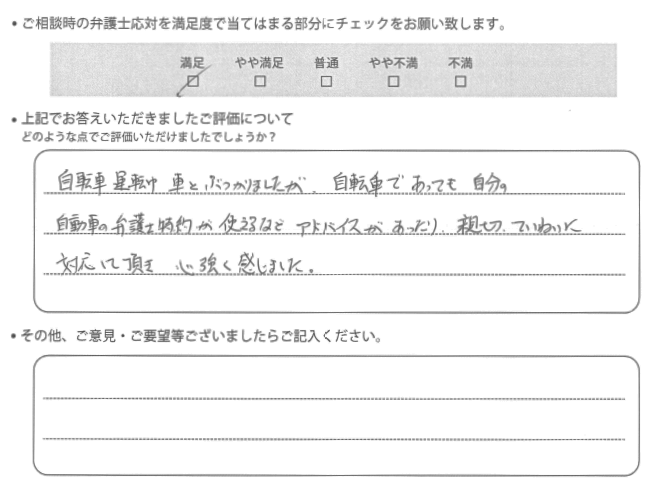 ・ご相談時の弁護士応対を満足度で当てはまる部分にチェックをお願い致します。
満足 やや満足 普通 やや不満 不満
・上記でお答えいただきましたご評価について
どのような点でご評価いただけましたでしょうか？
自転車運転中 車とぶつかりましたが、自転車であっても 自分の
自動車の弁護士特約が使えるなど アドバイスがあったり、親切、ていねいに
対応して頂き 心強く感じました。
・その他、ご意見・ご要望等ございましたらご記入ください。